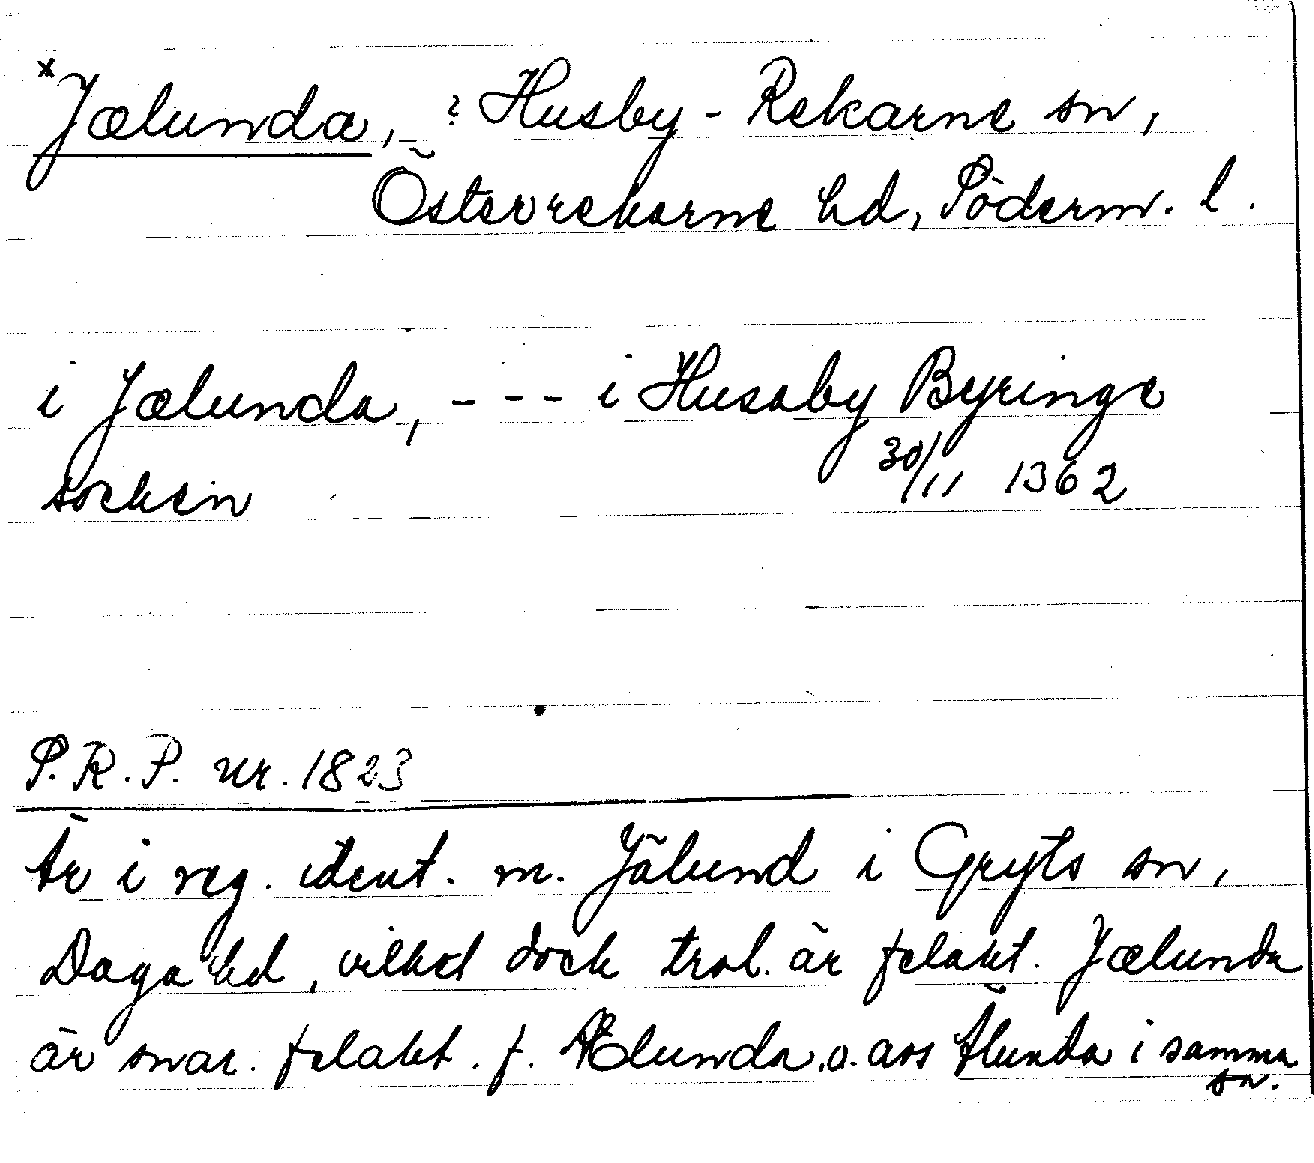 *Jælunda, ? Husby-Rekarne sn,
Österrekarne hd, Söderm. l.
i Jælunda, --- i Husaby Byringe
socken 30/11 1362
S.R.P. nr. 1823
Är i reg. ident. m. Jälund i Gryts sn,
Daga hd, vilket dock trol. är felakt. Jælunda
är snar. felakt. f. Ælunda, o. avs Älunda i samma
sn.